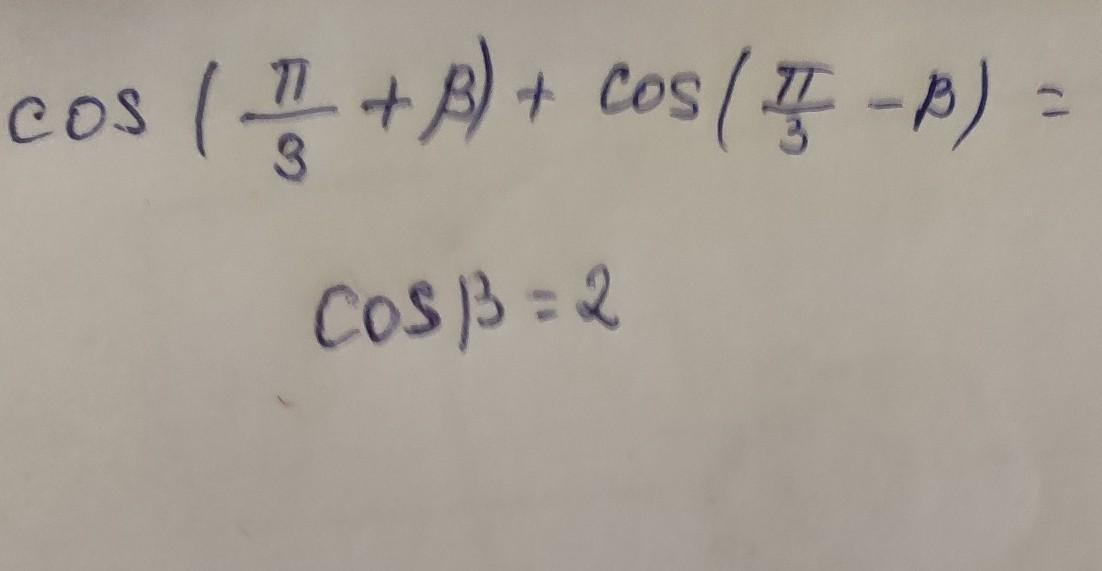 cos (π/3 + β) + cos (π/3 - β) =
cos β = 2